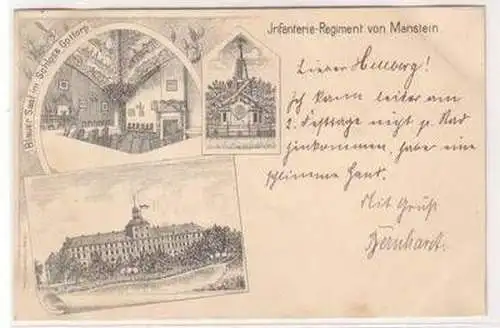 Infanterie-Regiment von Manstein
Blauer Saal im Schloss Gottorp
Lieber Helberg!
Ich kann leider am
2. Festtage nicht p. Rad
hinkommen, habe eine
schlimme Hand.
Mit Gruß
Bernhardt.